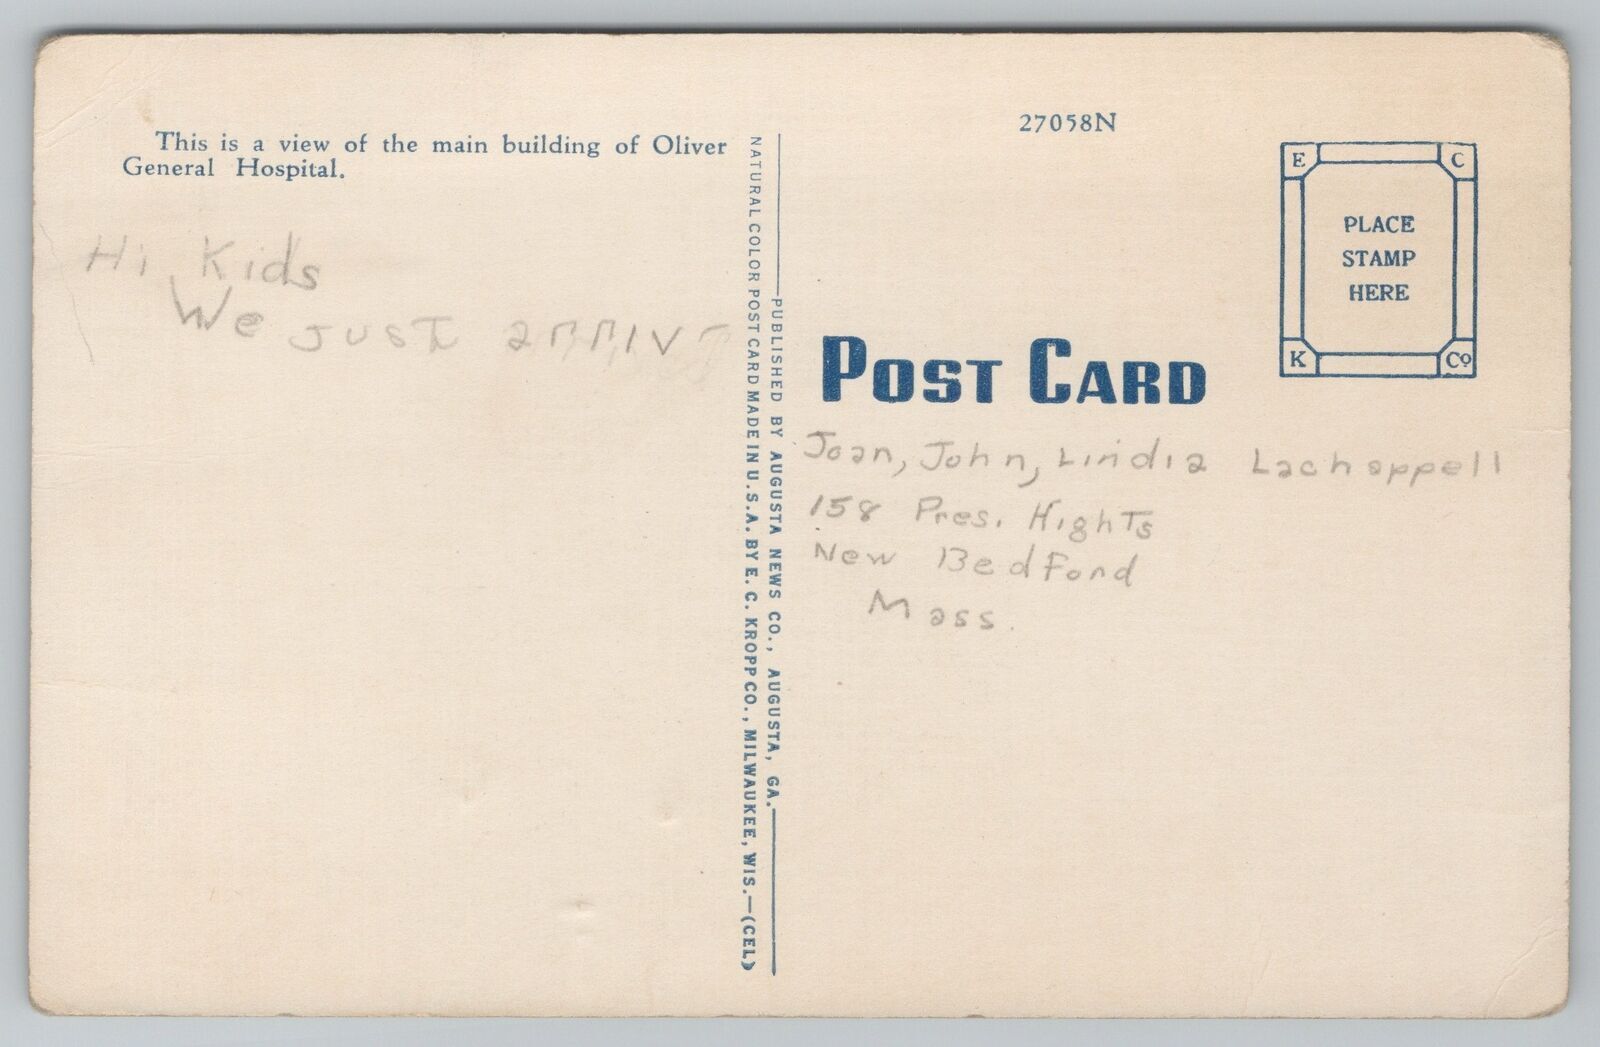 This is a view of the main building of Oliver
General Hospital.
Hi Kids
We just arriv
NATURAL COLOR POST CARD MADE IN U.S.A. BY E. C. KROPP CO., MILWAUKEE, WIS.—(CEL)
PUBLISHED BY AUGUSTA NEWS CO., AUGUSTA, GA.
27058N
E C
PLACE
STAMP
HERE
K Co
POST CARD
Joan, John, Lindia Lachappell
158 Pres. Hights
New Bedford
Mass.